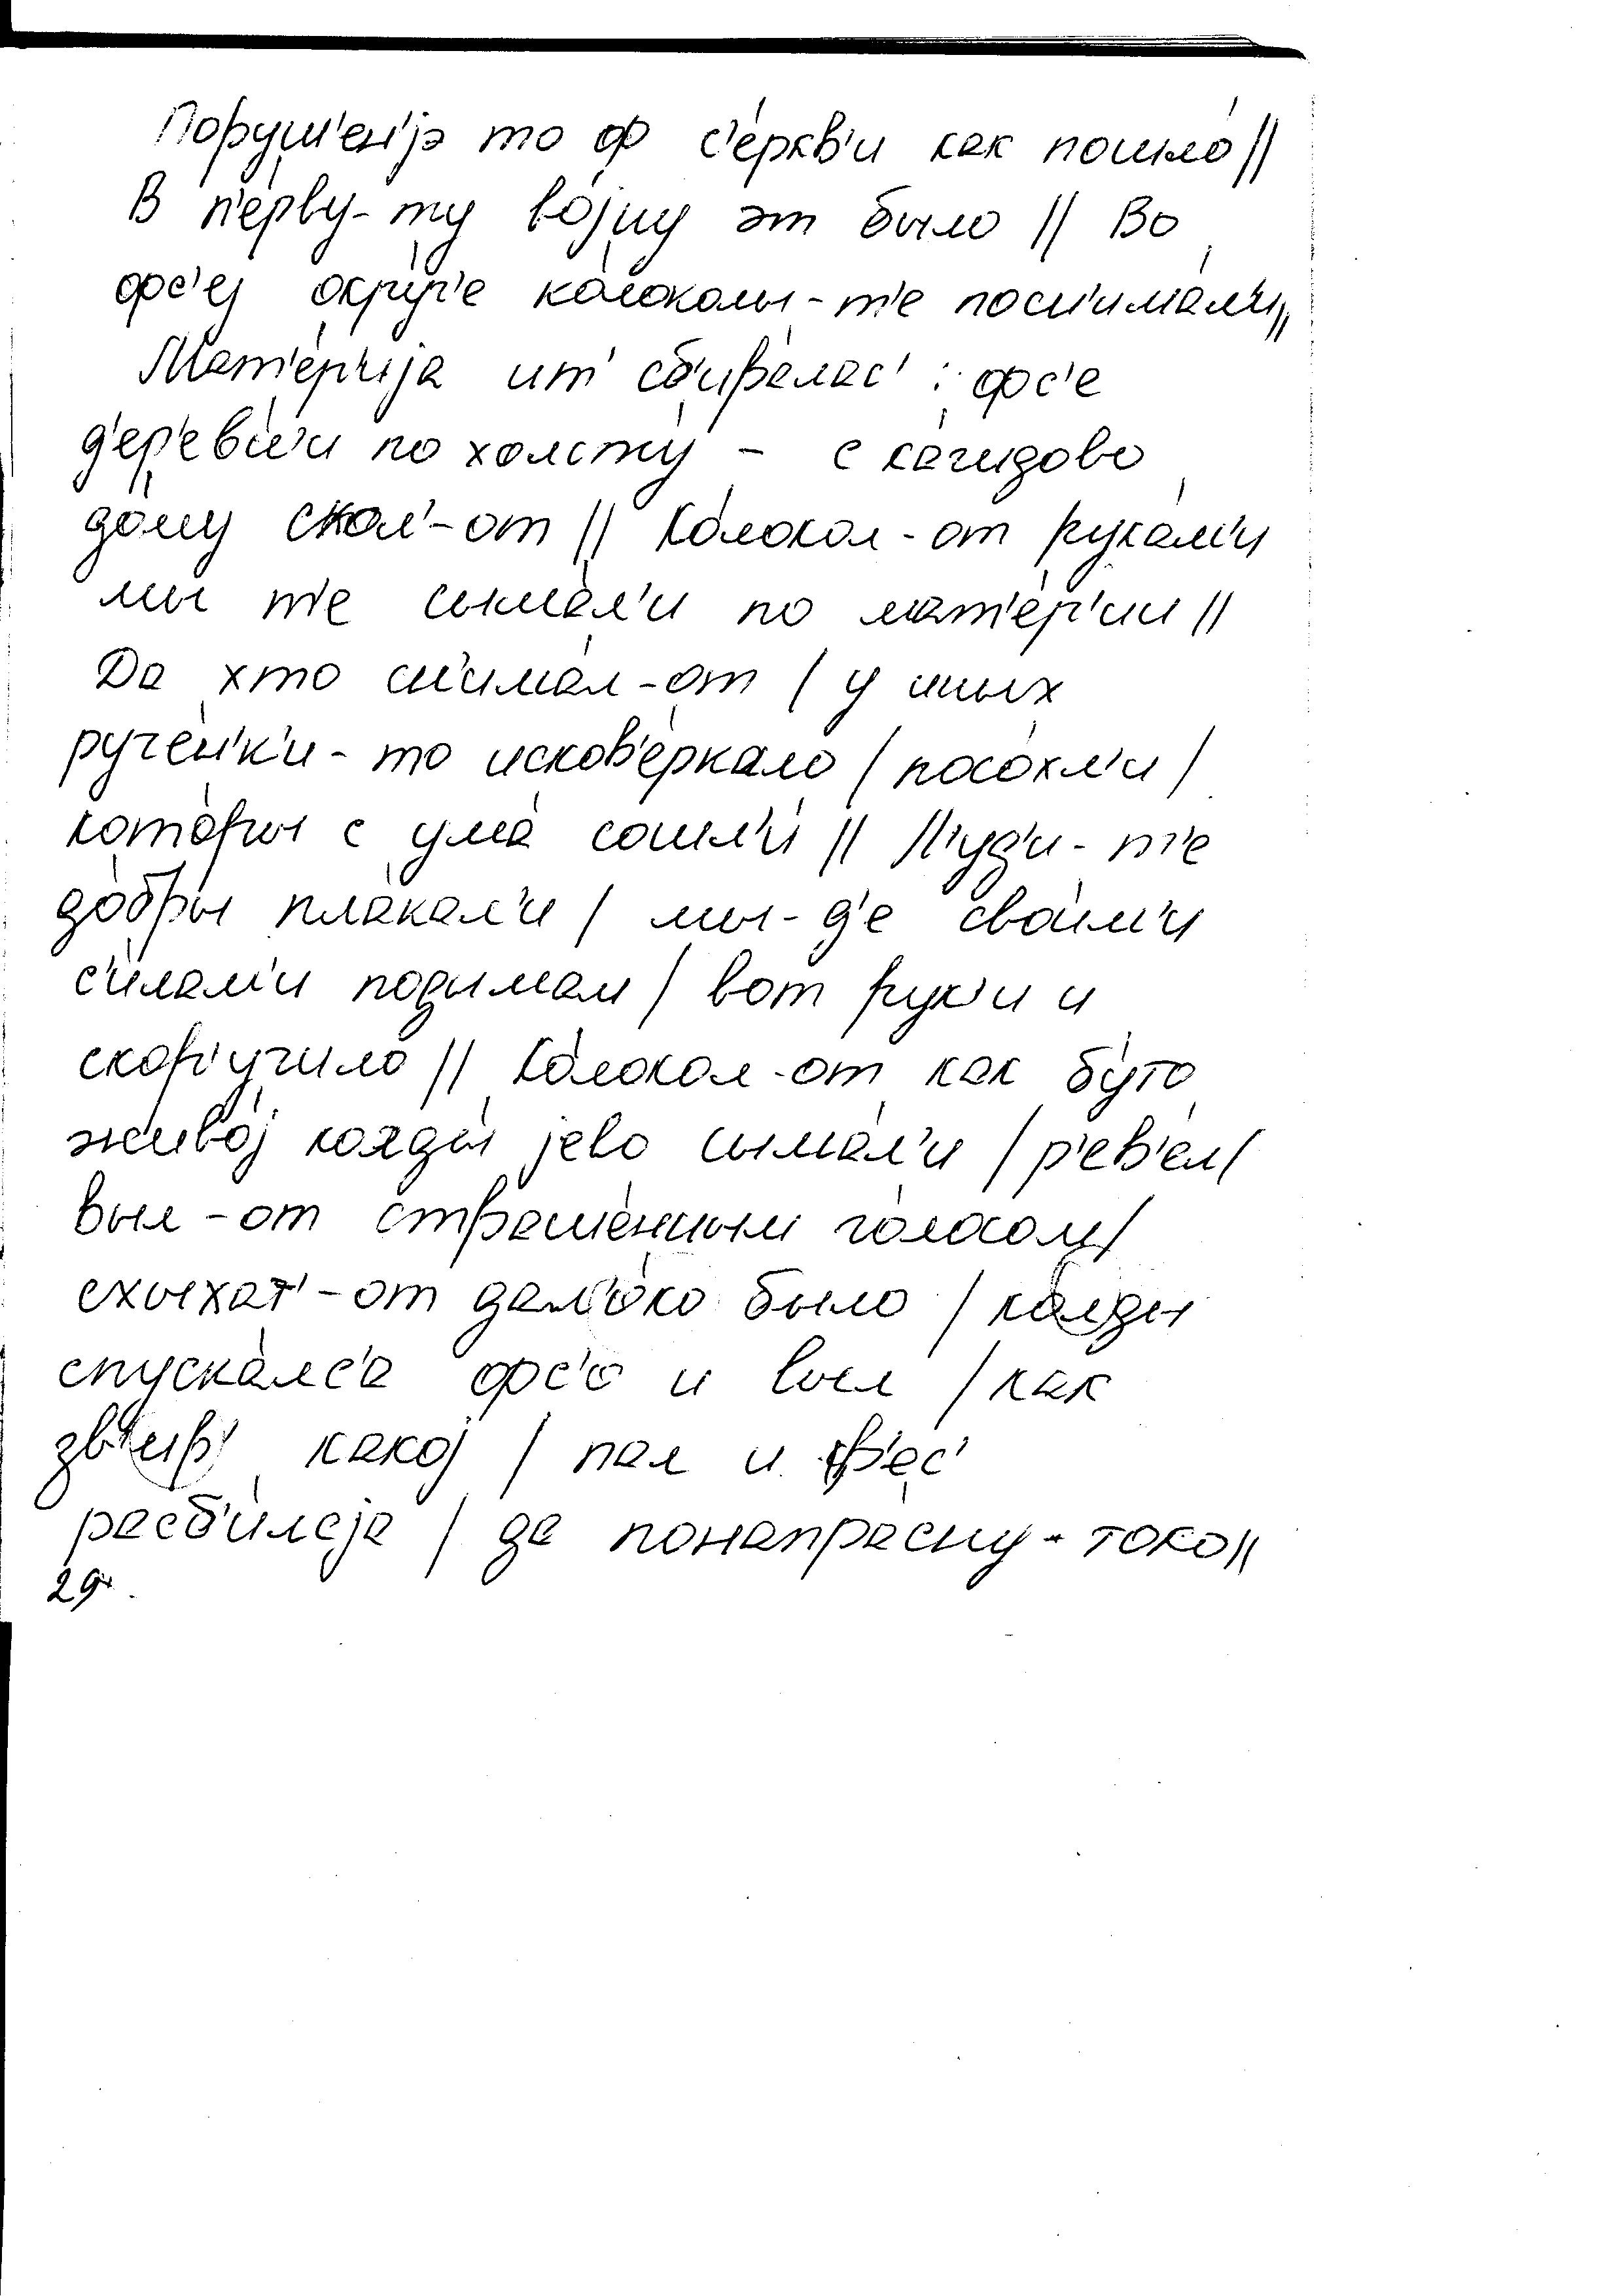 Поруш'ен'jэ то ф с'е́ркв'и как пошло́ //
В п'е́рву-ту во́jну эт было // Во
фс'еj окру́г'е ко́локолы-т'е посн'има́л'и //
Мат'е́р'иjа ит' сб'ира́лас' : фс'е
д'ер'е́вн'и по холсту́ – с ка́ждово
до́му скол'-от // Ко́локол-от рука́м'и
мы т'е сыма́л'и по мат'е́р'ии //
Да хто сн'има́л-от / у иных
ручéн'к'и-то исков'е́ркало / посо́хл'и /
кото́ры с ума́ сошл'и́ // Л'у́д'и-т'е
до́бры пла́кал'и / мы-д'е сво́им'и
с'и́лам'и подымам / вот ру́к'и и
скор'у́чило // Ко́локол-от как бу́то
живо́j колды́ jево сыма́л'и / р'ев'е́л /
выл-от страше́нным го́лосом /
слыхат'-от дал'о́ко было / колды
спуска́лс'а фс'о и выл / как
зв'ир' какоj / пал и в'ес'
расб'и́лсjа / да понапра́сну-токо //
29.